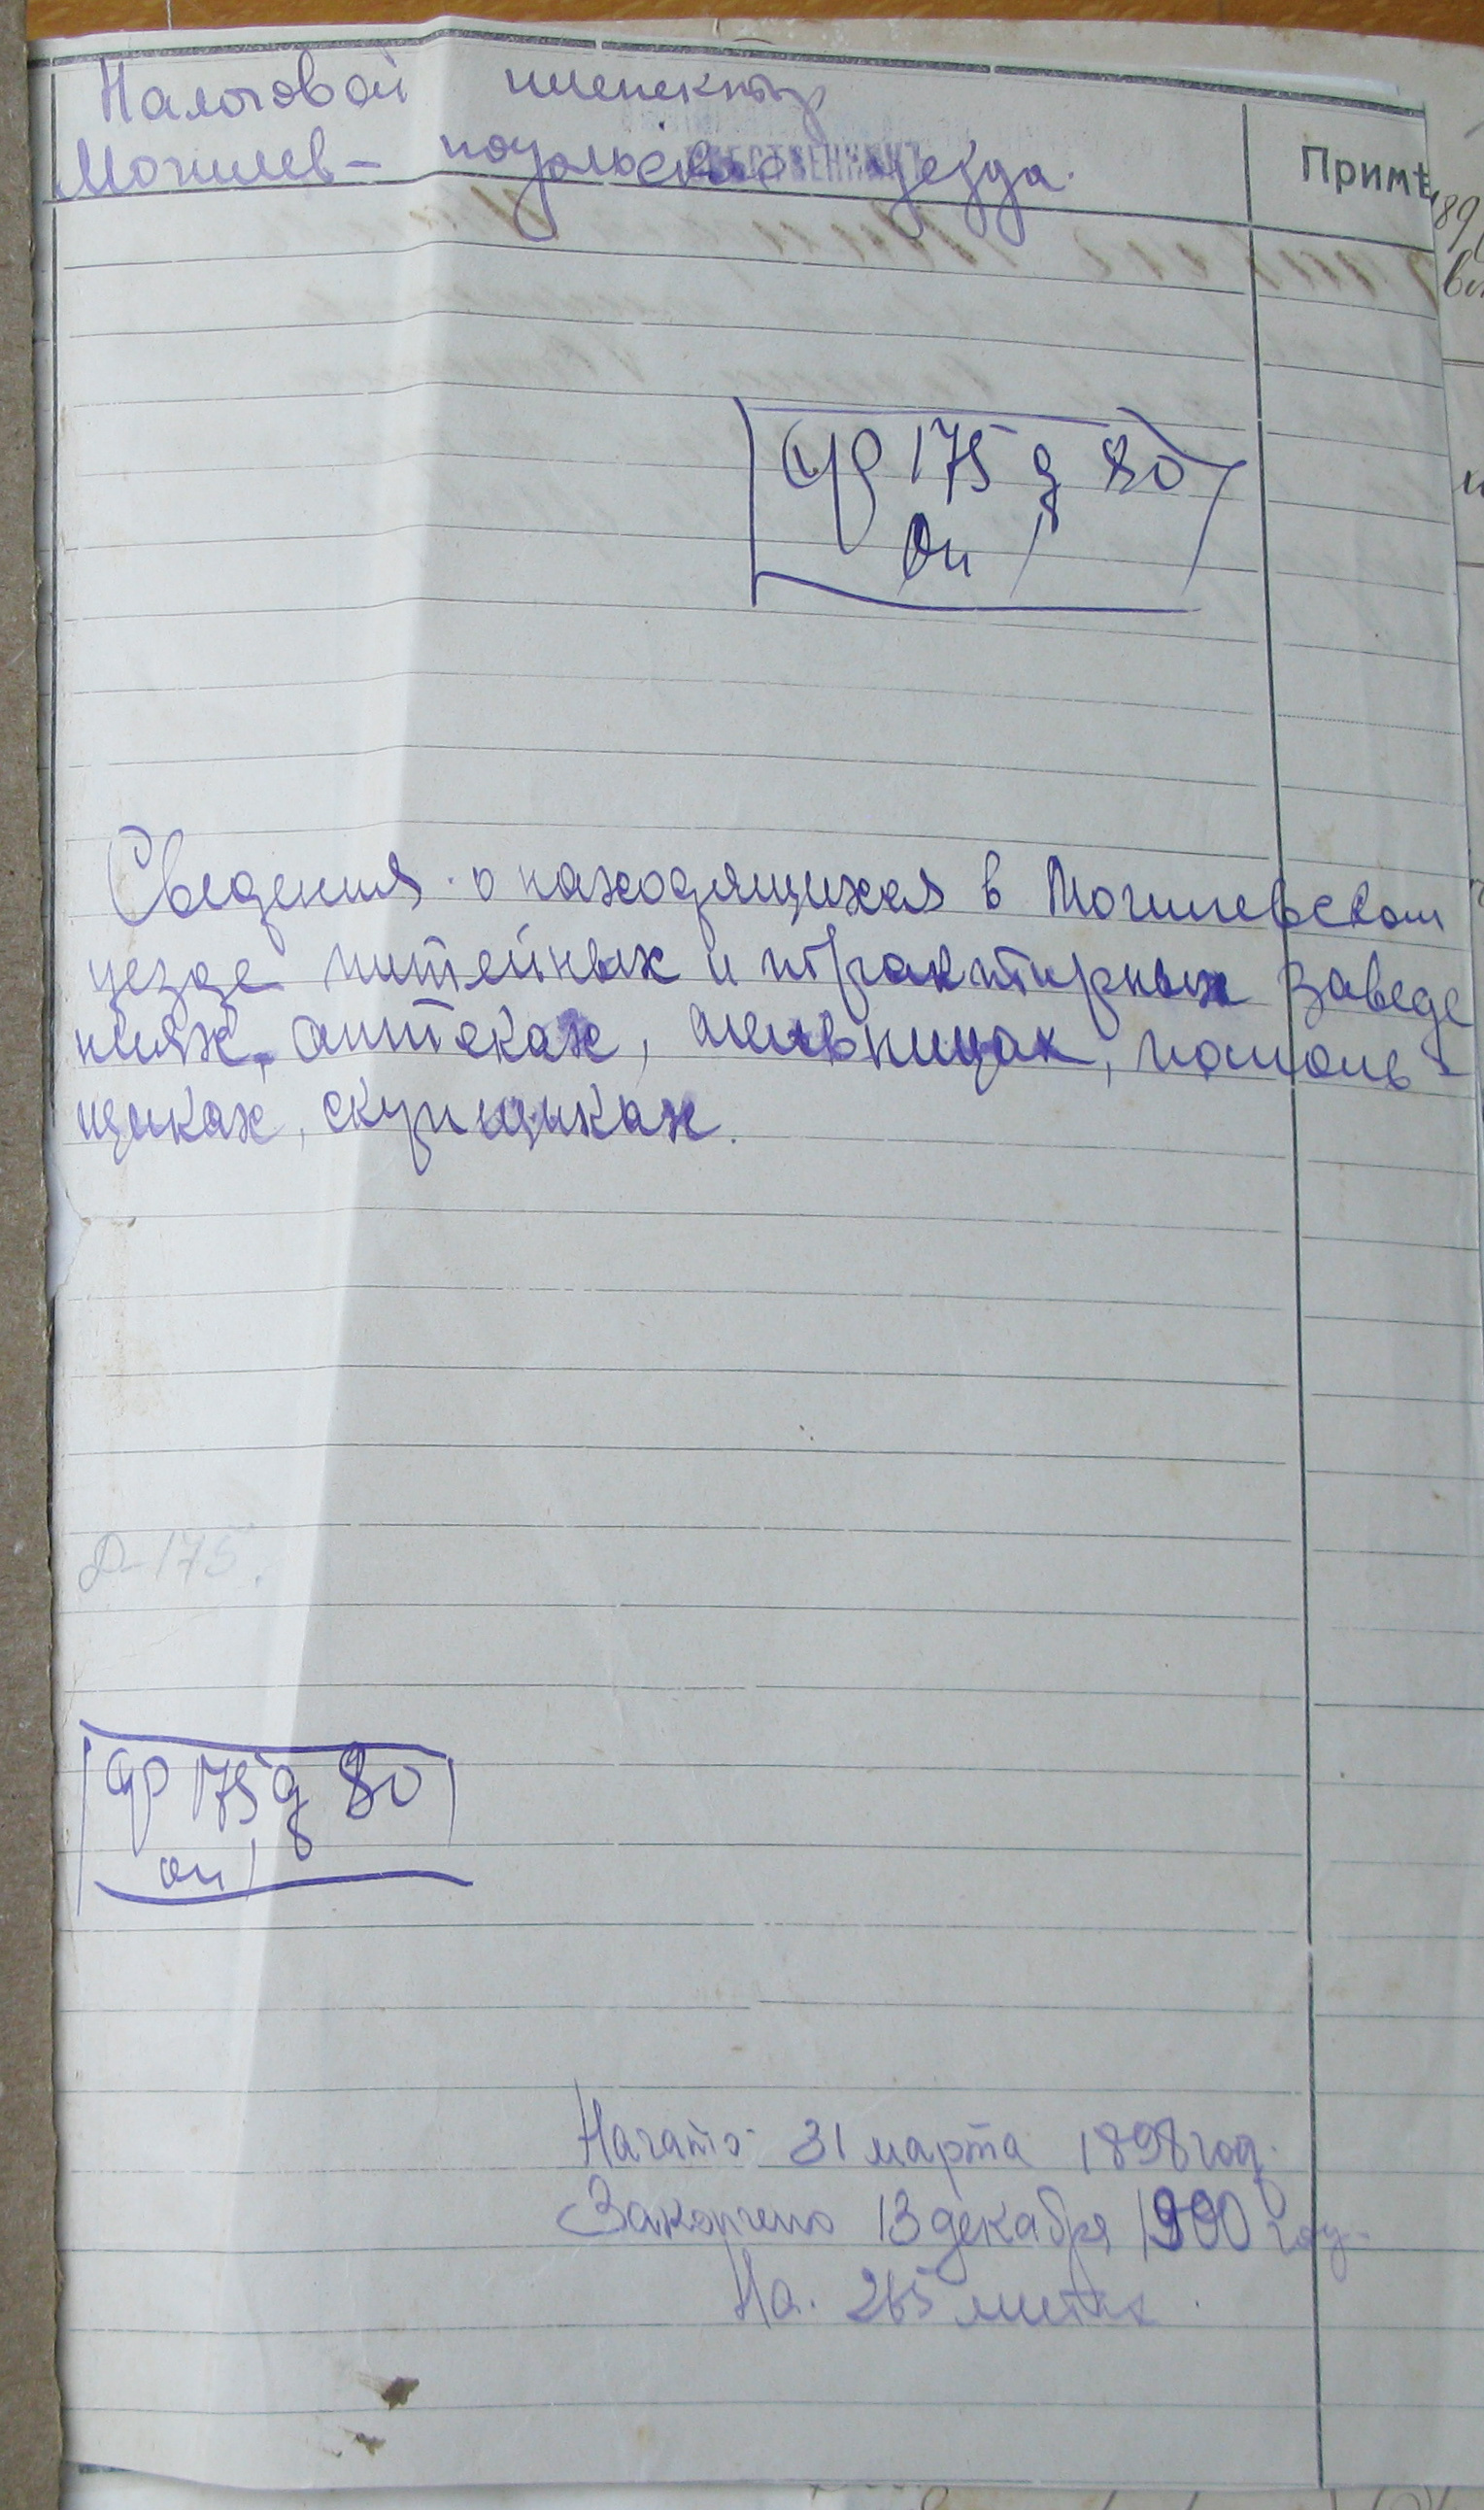 Налоговой инспектор
Могилев-подольского уезда.
Примѣ
ф 175 д 80
оп 1
Сведения о находящихся в Могилевском
уезде питейных и трактирных заведе
ниях, аптеках, мельницах, помоль-
щиках, скупщиках.
Ф-175.
ф 175 д 80
оп 1
Начато 31 марта 1898 год.
Закончено 13 декабря 1900 год.
На 265 листах.